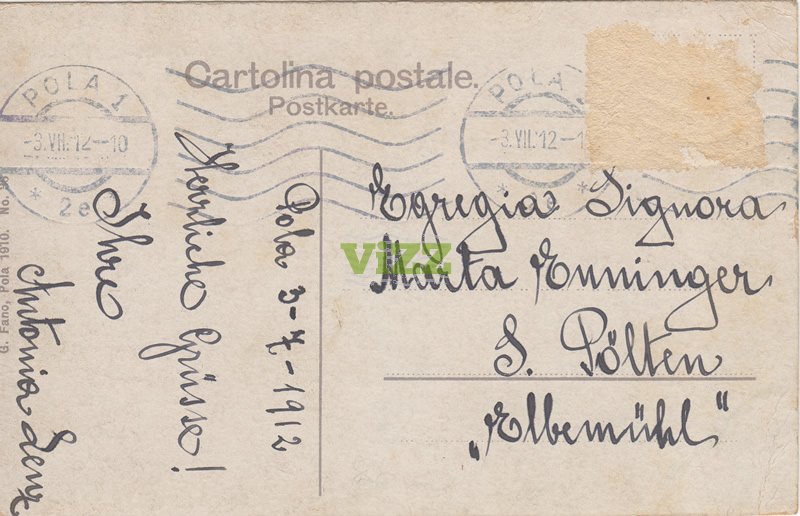 Cartolina postale.
Postkarte.
POLA 1
-3.VII.12-10
* 2e
POLA
-3.VII.12-1
*
Pola 3-7-1912
Herzliche Grüsse!
Ihre
Antonia Lenz
Egregia Signora
Marta Enninger
S. Pölten
„Elbemühl"
G. Fano, Pola 1910. No.
vizz